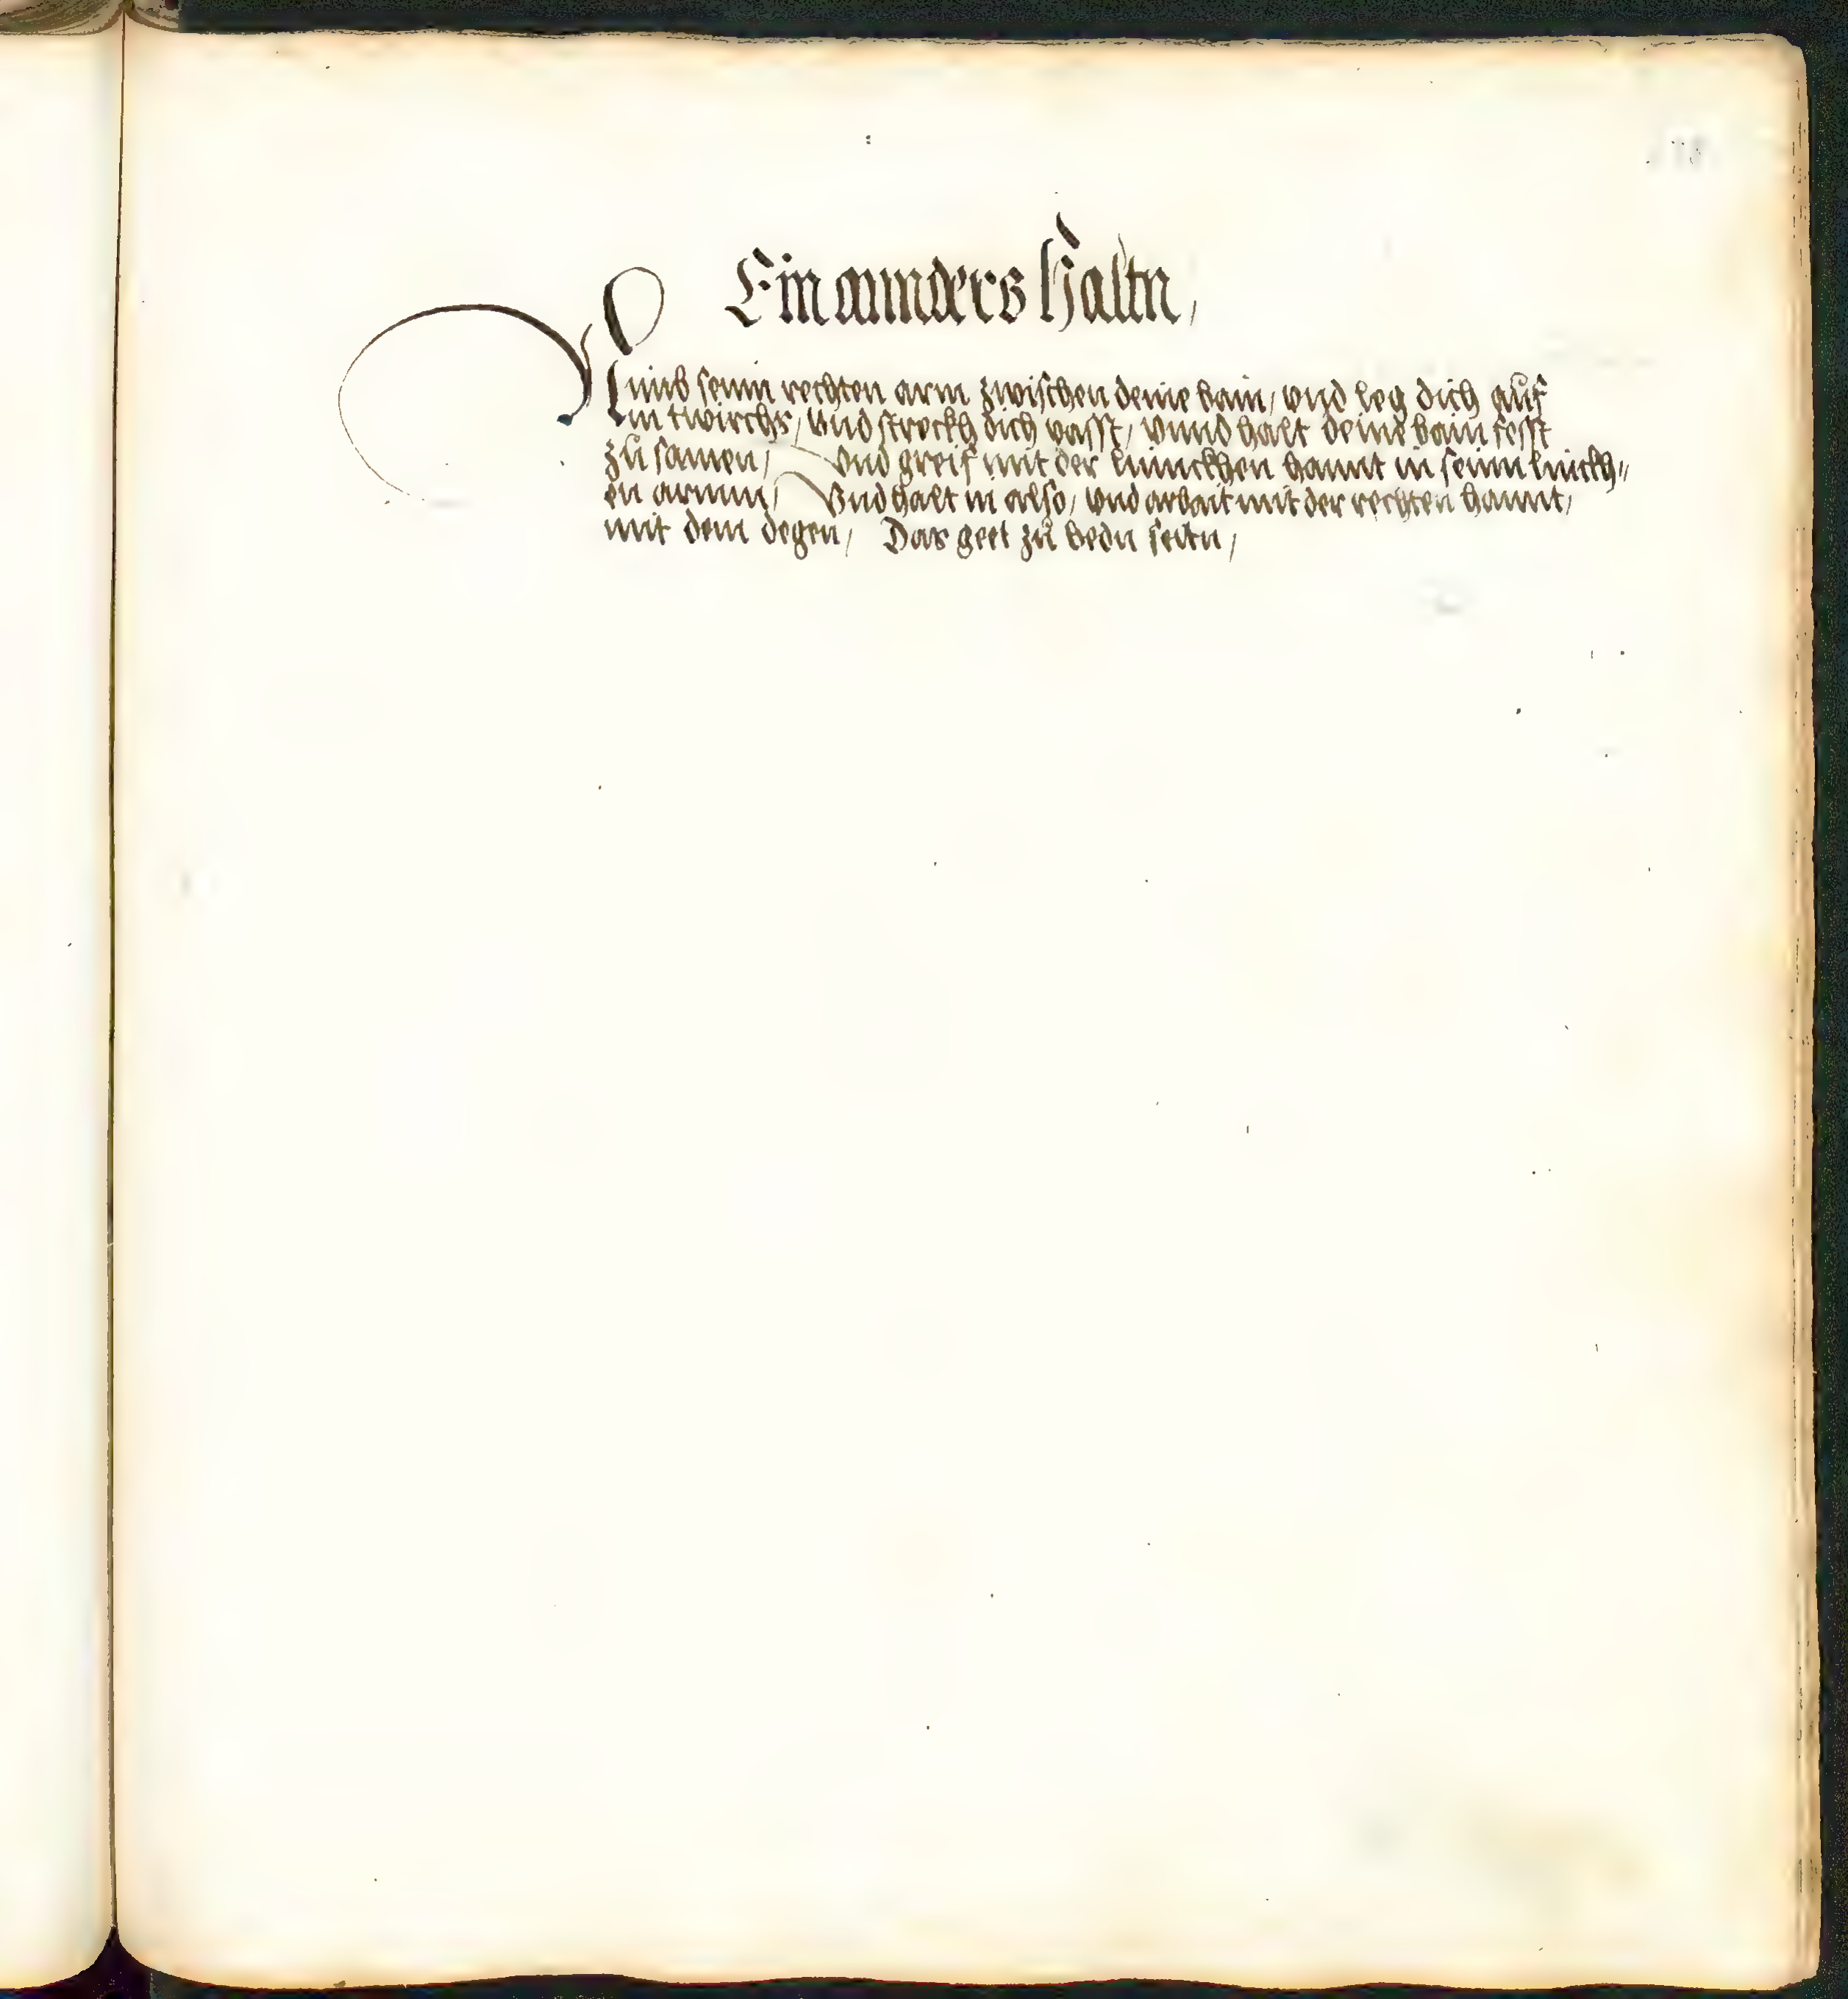 Ein annders Haltn,
Nimb seinn rechten arm zwischen deine bain, vnd leg dich auf
in twirchs, vnd streckh dich vasst, vnnd halt deine bain fesst
zu samen, vnd greif mit der linnckhen hannt in seinn linckh„
en armm, Vnd halt in also, vnd arbait mit der rechten hannt,
mit dem degen, Das geet zů bedn seitn,